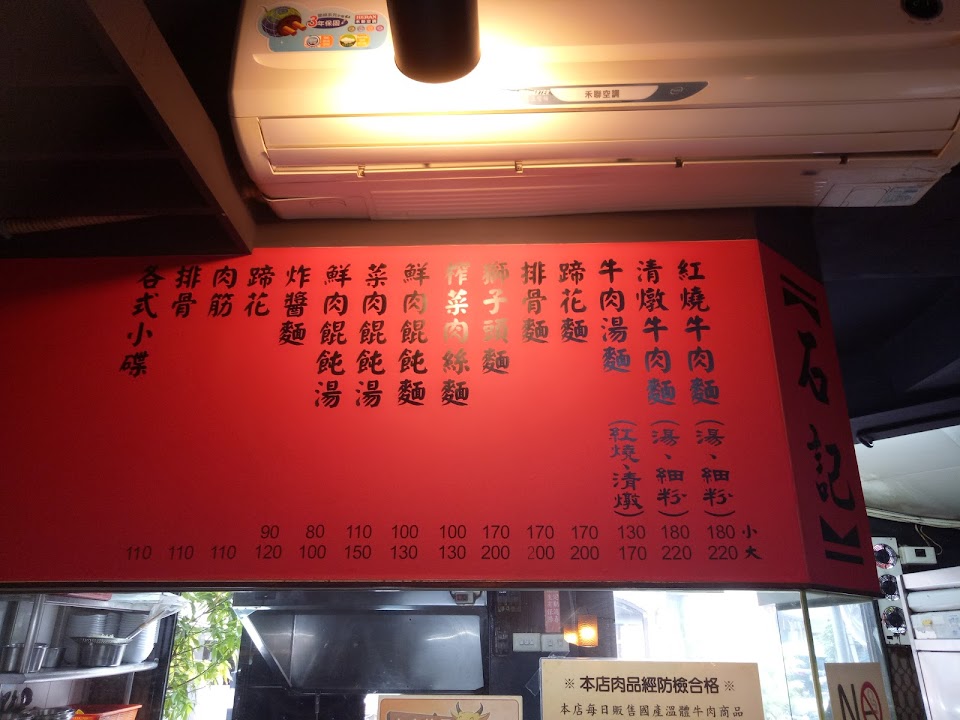 3年保固
HERAN
禾聯空調
石記
紅燒牛肉麵(湯、細粉)
清燉牛肉麵(湯、細粉)
牛肉湯麵(紅燒、清燉)
蹄花麵
排骨麵
獅子頭麵
榨菜肉絲麵
鮮肉餛飩麵
菜肉餛飩湯
鮮肉餛飩湯
炸醬麵
蹄花
肉筋
排骨
各式小碟
90 80 110 100 100 170 170 170 130 180 180 小
110 110 110 120 100 150 130 130 200 200 200 170 220 220 大
※ 本店肉品經防檢合格 ※
本店每日販售國產溫體牛肉商品
NO